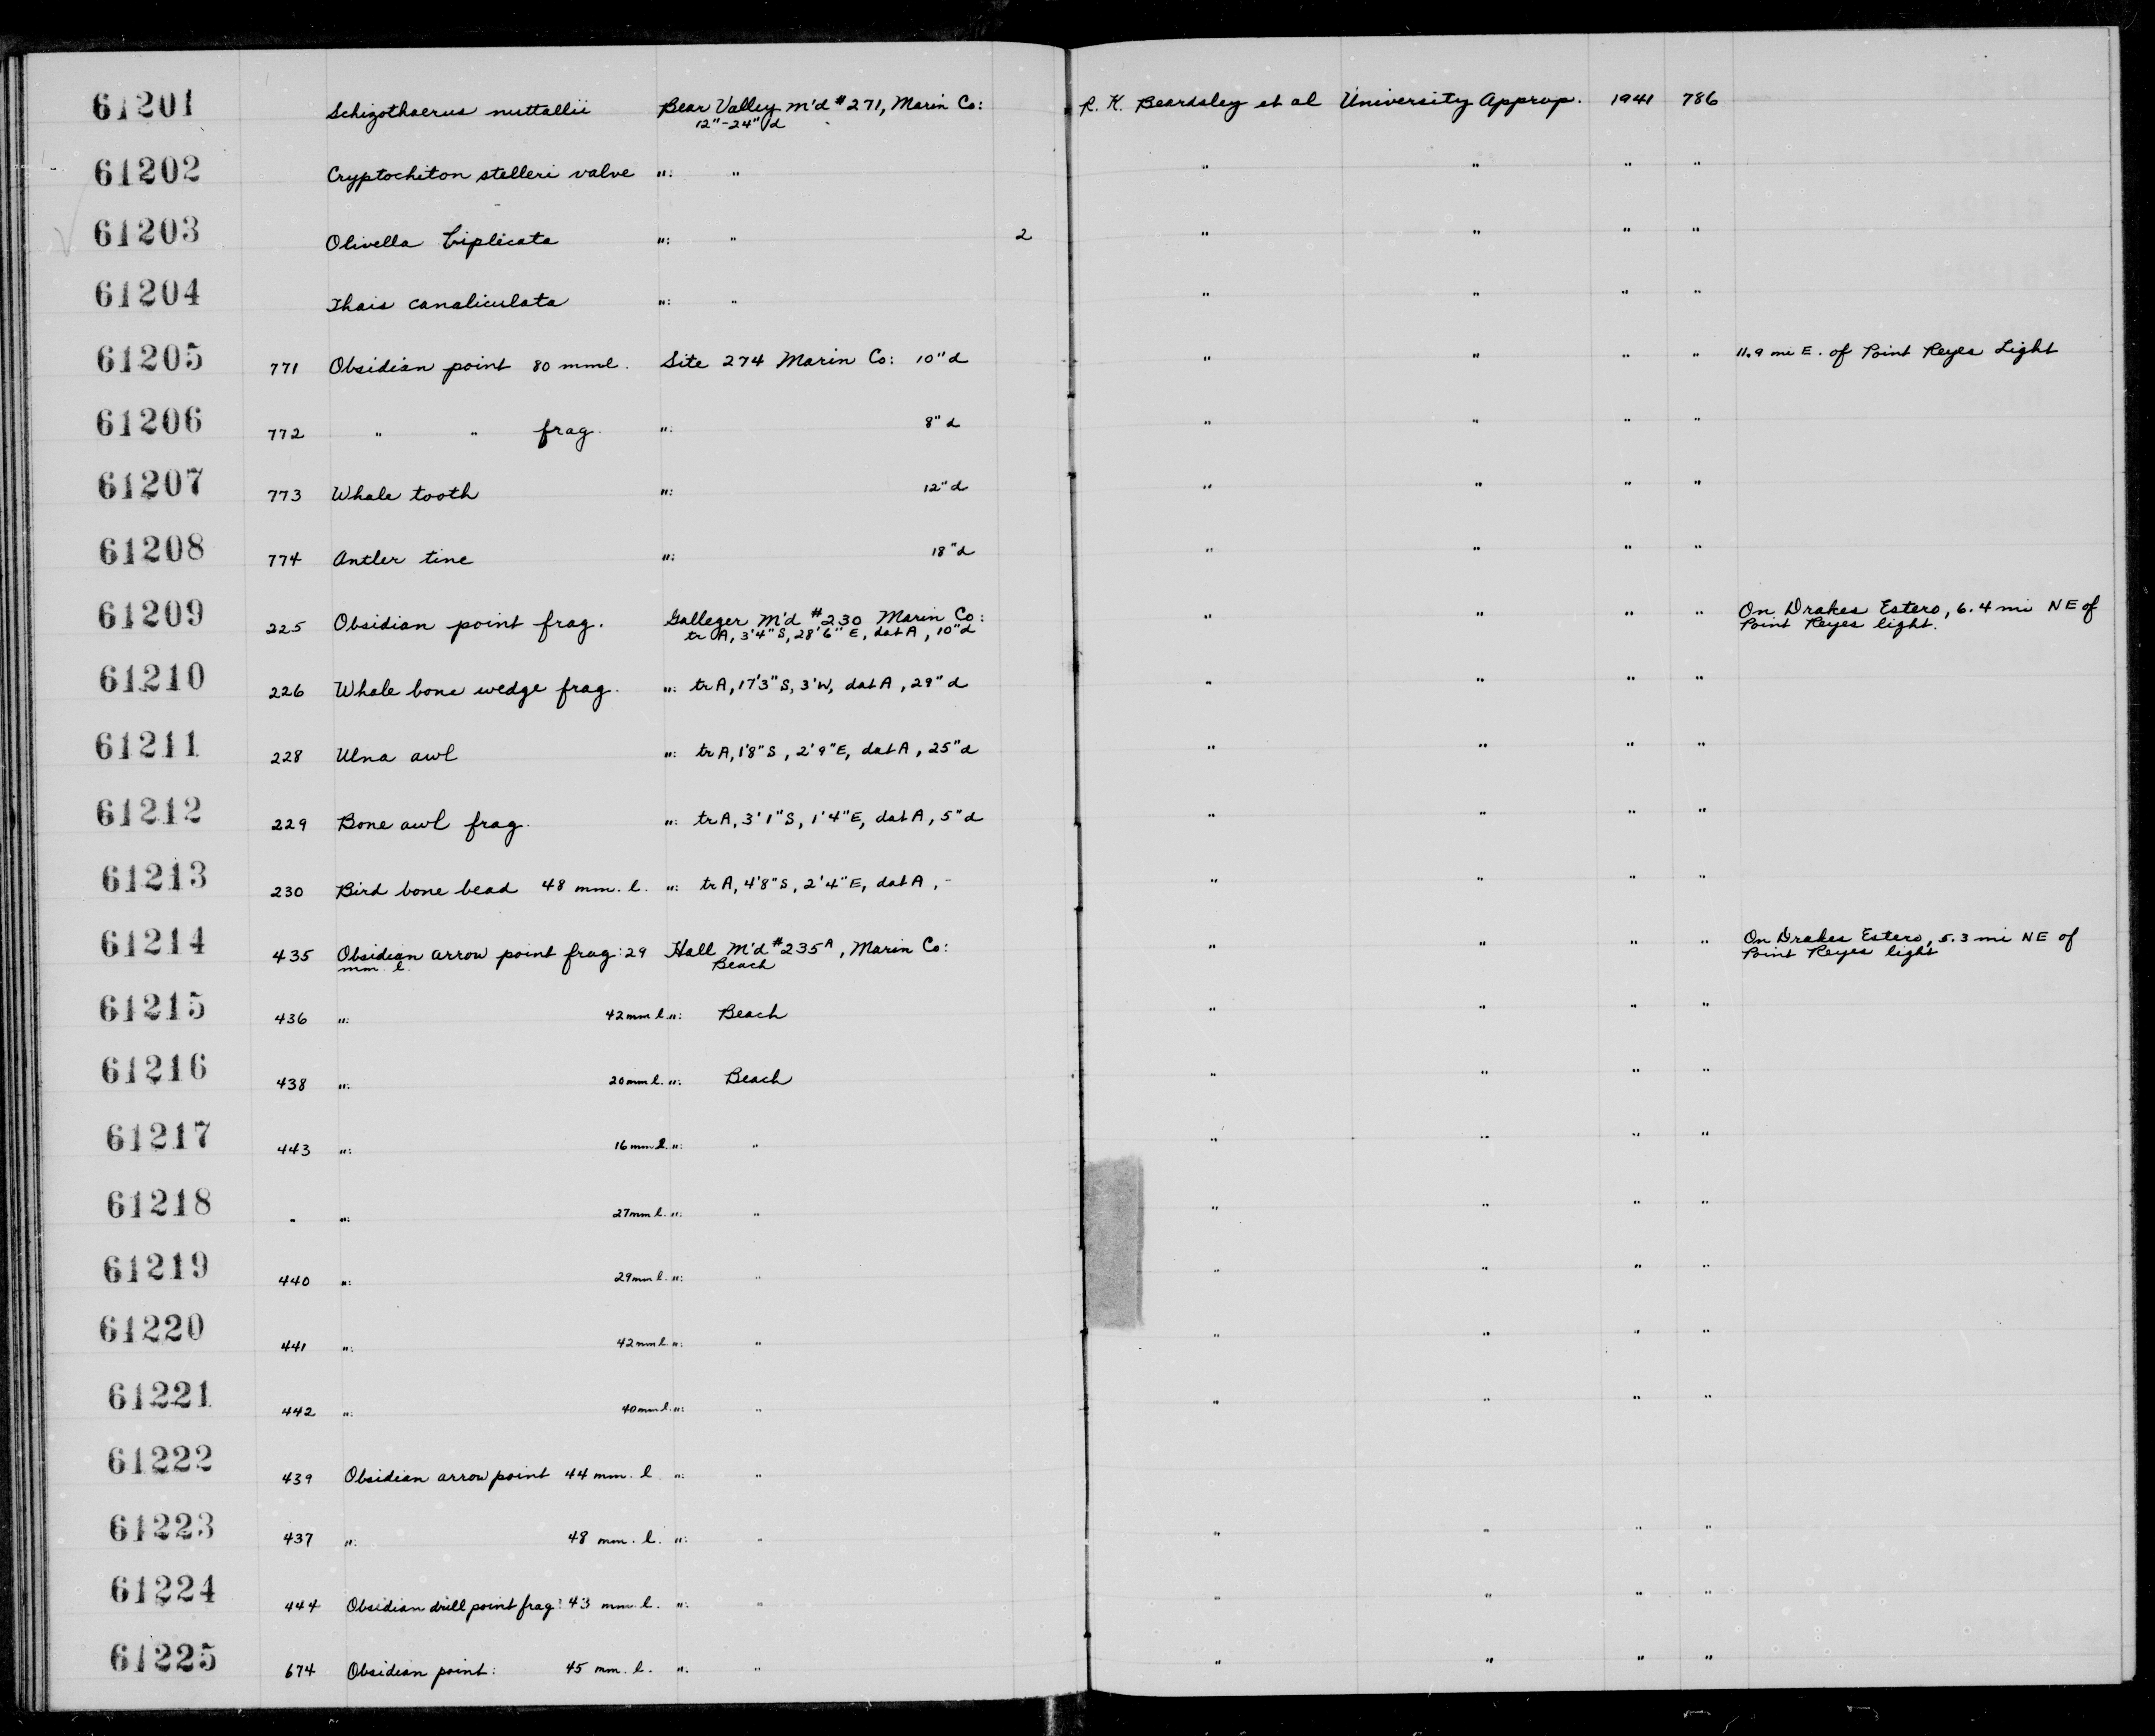 61201 Schizothaerus nuttallii Bear Valley M'd #271, Marin Co: R. K. Beardsley et al University Approp. 1941 786
12"-24" d
61202 Cryptochiton stelleri valve ": " " " " "
61203 Olivella biplicata ": " 2 " " " "
61204 Thais canaliculata ": " " " " "
61205 771 Obsidian point 80 mml. Site 274 Marin Co: 10" d " " " " 11.9 mi E. of Point Reyes Light
61206 772 " " frag. ": 8" d " " " "
61207 773 Whale tooth ": 12" d " " " "
61208 774 Antler tine ": 18" d " " " "
61209 225 Obsidian point frag. Galleger M'd #230 Marin Co: " " " " On Drakes Estero, 6.4 mi NE of
tr A, 3'4" S, 28'6" E, dat A, 10" d Point Reyes light.
61210 226 Whale bone wedge frag. ": tr A, 17'3" S, 3' W, dat A, 29" d " " " "
61211 228 Ulna awl ": tr A, 1'8" S, 2'9" E, dat A, 25" d " " " "
61212 229 Bone awl frag. ": tr A, 3'1" S, 1'4" E, dat A, 5" d " " " "
61213 230 Bird bone bead 48 mm. l. ": tr A, 4'8" S, 2'4" E, dat A, - " " " "
61214 435 Obsidian arrow point frag: 29 Hall M'd #235A, Marin Co: " " " " On Drakes Estero, 5.3 mi NE of
mm. l. Beach Point Reyes light
61215 436 ": 42 mm l. ": Beach " " " "
61216 438 ": 20 mm l. ": Beach " " " "
61217 443 ": 16 mm l. ": " " " " "
61218 - ": 27 mm l. ": " " " " "
61219 440 ": 29 mm l. ": " " " " "
61220 441 ": 42 mm l. ": " " " " "
61221 442 ": 40 mm l. ": " " " " "
61222 439 Obsidian arrow point 44 mm. l ": "
61223 437 ": 48 mm. l. ": " " " " "
61224 444 Obsidian drill point frag: 43 mm. l. ": " " " " "
61225 674 Obsidian point: 45 mm. l. ". " " " " "